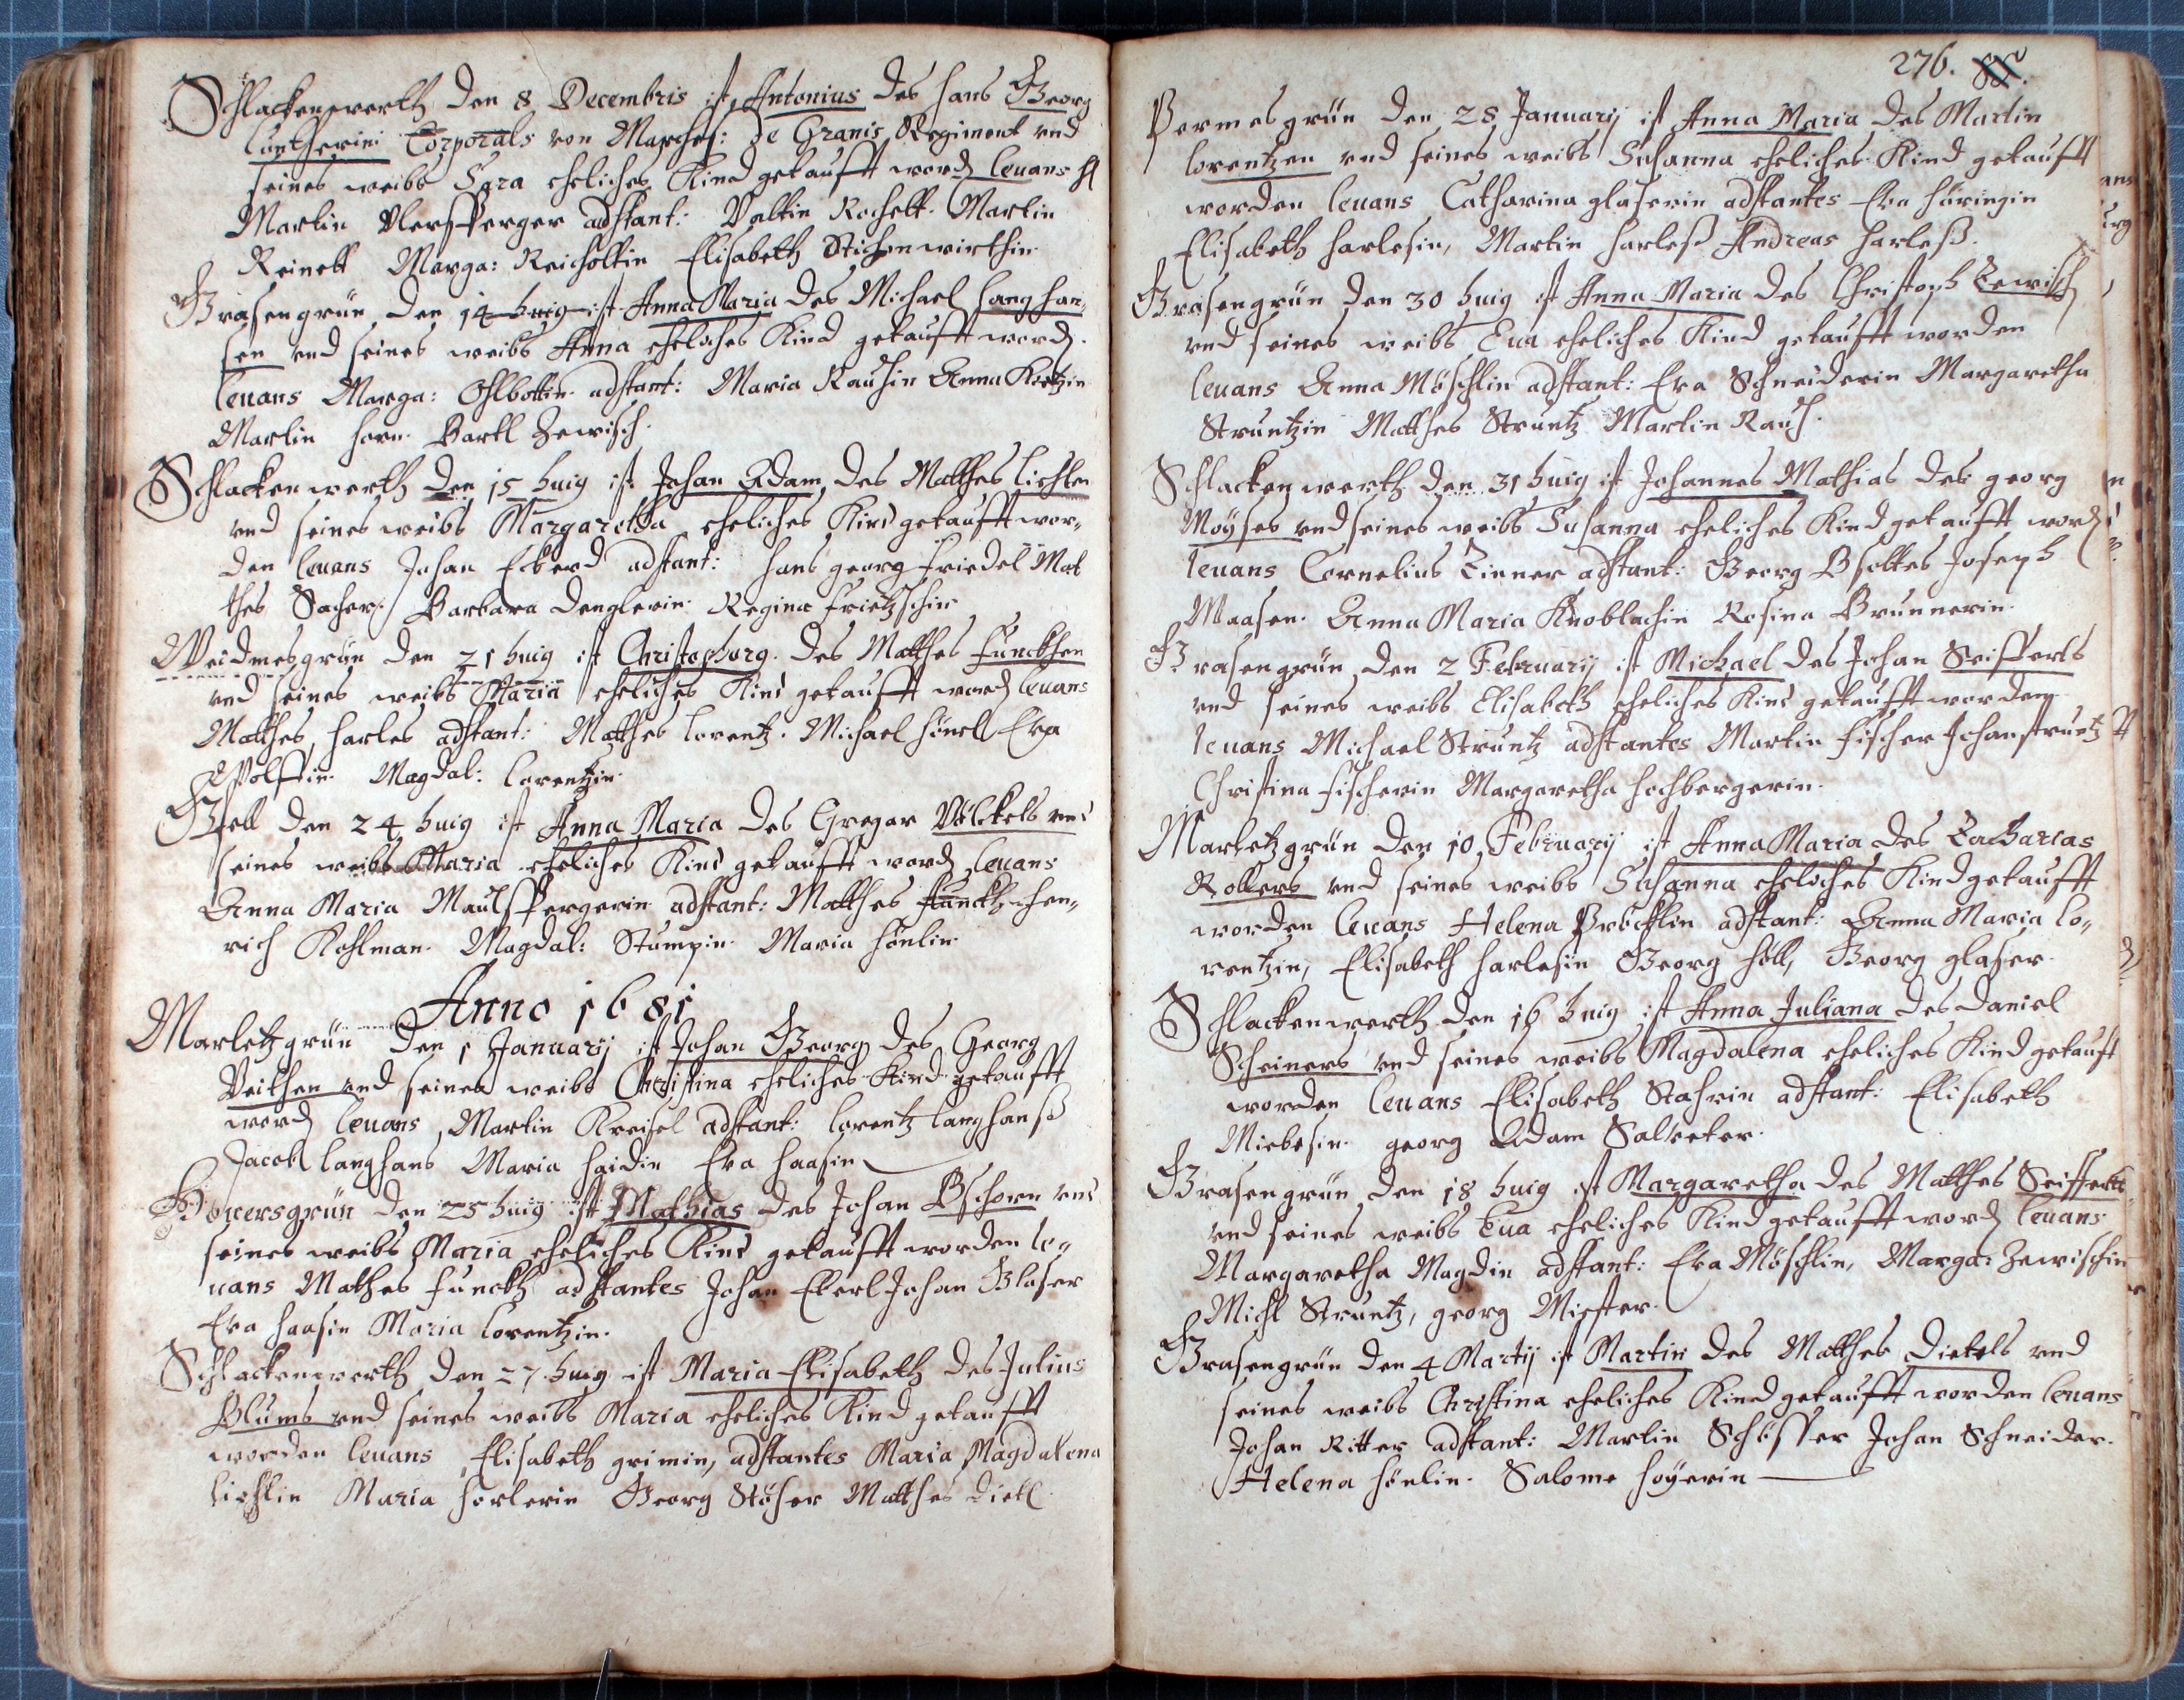 Schlackenwerth den 8 Decembris ist Antonius des Hans Georg
Corporals von Marches: de Granis Regiment vnd
seines weibs Sara eheliches Kind getaufft word leuans H
Martin adstant: Valtin Rochelt. Martin
Reinelt Marga: Reicholtin Elisabeth Stichenwirthin
Grasengrün den 14 huig ist Anna Maria des Michael Langhan„
sen vnd seines weibs Anna eheliches Kind getaufft word.
leuans Marga: adstant: Maria Rauhin Anna
Martin Horn. Bartl Zewisch.
Schlackenwerth den 15 huig ist Johan Adam des Matthes Lichten
vnd seines weibs Margaretha eheliches Kind getaufft wor„
den leuans Johan Eberd adstant: Hans Georg Friedel Mat
thes Sacher. Barbara Denglerin Regina Frietzschin
Weidmesgrün den 21 huig ist Christophorg. des Matthes Funckhen
vnd seines weibs Maria eheliches Kind getaufft word leuans
Matthes Harles adstant: Matthes Lorentz. Michael Hönel Eva
Wolffin. Magdal: Lorentzin.
Gfell den 24 huig ist Anna Maria des Gregor Völckels vnd
seines weibs Maria eheliches Kind getaufft word leuans
Anna Maria Maulspergerin adstant: Matthes Funckh Hen„
rich Kohlman. Magdal: Stumpin. Maria Hönlin.
Anno 1681
Marletzgrün den 1 Januarij ist Johan Georg des Georg
Veithen vnd seines weibs Christina eheliches Kind getaufft
word leuans, Martin Kreisel adstant: Lorentz Langhanß
Jacob Langhans Maria Haidin Eva Haasin
den 25 huig ist Mathias des Johan Bschorn vnd
seines weibs Maria eheliches Kind getaufft worden le„
uans Mathes Funckh adstantes Johan Eberl Johan Glaser
Eva Haasin Maria Lorentzin.
Schlackenwerth den 27 huig ist Maria Elisabeth des Julius
Blums vnd seines weibs Maria eheliches Kind getaufft
worden leuans, Elisabeth Grimin, adstantes Maria Magdalena
Lichlin Maria Horlerin Georg Stöhser Matthes Dietl.
276.
Permesgrün den 28 Januarij ist Anna Maria des Martin
Lorentzen vnd seines weibs Susanna eheliches Kind getaufft
worden leuans Catharina Glaserin adstantes Eva Häringin
Elisabeth Harlesin, Martin Harleß Andreas Harleß.
Grasengrün den 30 huig ist Anna Maria des Christoph Zewisch
vnd seines weibs Eua eheliches Kind getaufft worden
leuans Anna Möschlin adstant: Eva Schneiderin Margaretha
Struntzin Matthes Struntz Martin Rauh.
Schlackenwerth den 31 huig ist Johannes Mathias des Georg
Moÿses vnd seines weibs Susanna eheliches Kind getaufft word
leuans Cornelius Zinner adstant: Georg Joseph
Maasen. Anna Maria Knoblachin Rosina Brunnerin.
Grasengrün den 2 Februarij ist Michael des Johan Seifferts
vnd seines weibs Elisabeth eheliches Kind getaufft worden
leuans Michael Struntz adstantes Martin Fischer Johan Struntz
Christina Fischerin Margaretha Hochbergerin.
Marletzgrün den 10 Februarij ist Anna Maria des Zacharias
Rollers vnd seines weibs Susanna eheliches Kind getaufft
worden leuans Helena Pröcklin adstant: Anna Maria Lo„
rentzin, Elisabeth Harlesin Georg Höll, Georg Glaser.
Schlackenwerth den 16 huig ist Anna Juliana des Daniel
Scheiners vnd seines weibs Magdalena eheliches Kind getaufft
worden leuans Elisabeth Stahrin adstant: Elisabeth
Miebesin. Georg Adam Salveter.
Grasengrün den 18 huig ist Margaretha des Matthes Seifferts
vnd seines weibs Eua eheliches Kind getaufft word leuans
Margaretha Magdin adstant: Eva Möschlin, Marga: Zewischin
Michl Struntz, Georg
Grasengrün den 4 Martij ist Martin des Matthes Dietels vnd
seines weibs Christina eheliches Kind getaufft worden leuans
Johan Ritter adstant: Martin Schöffer Johan Schneider.
Helena Hönlin. Salome Hoÿerin